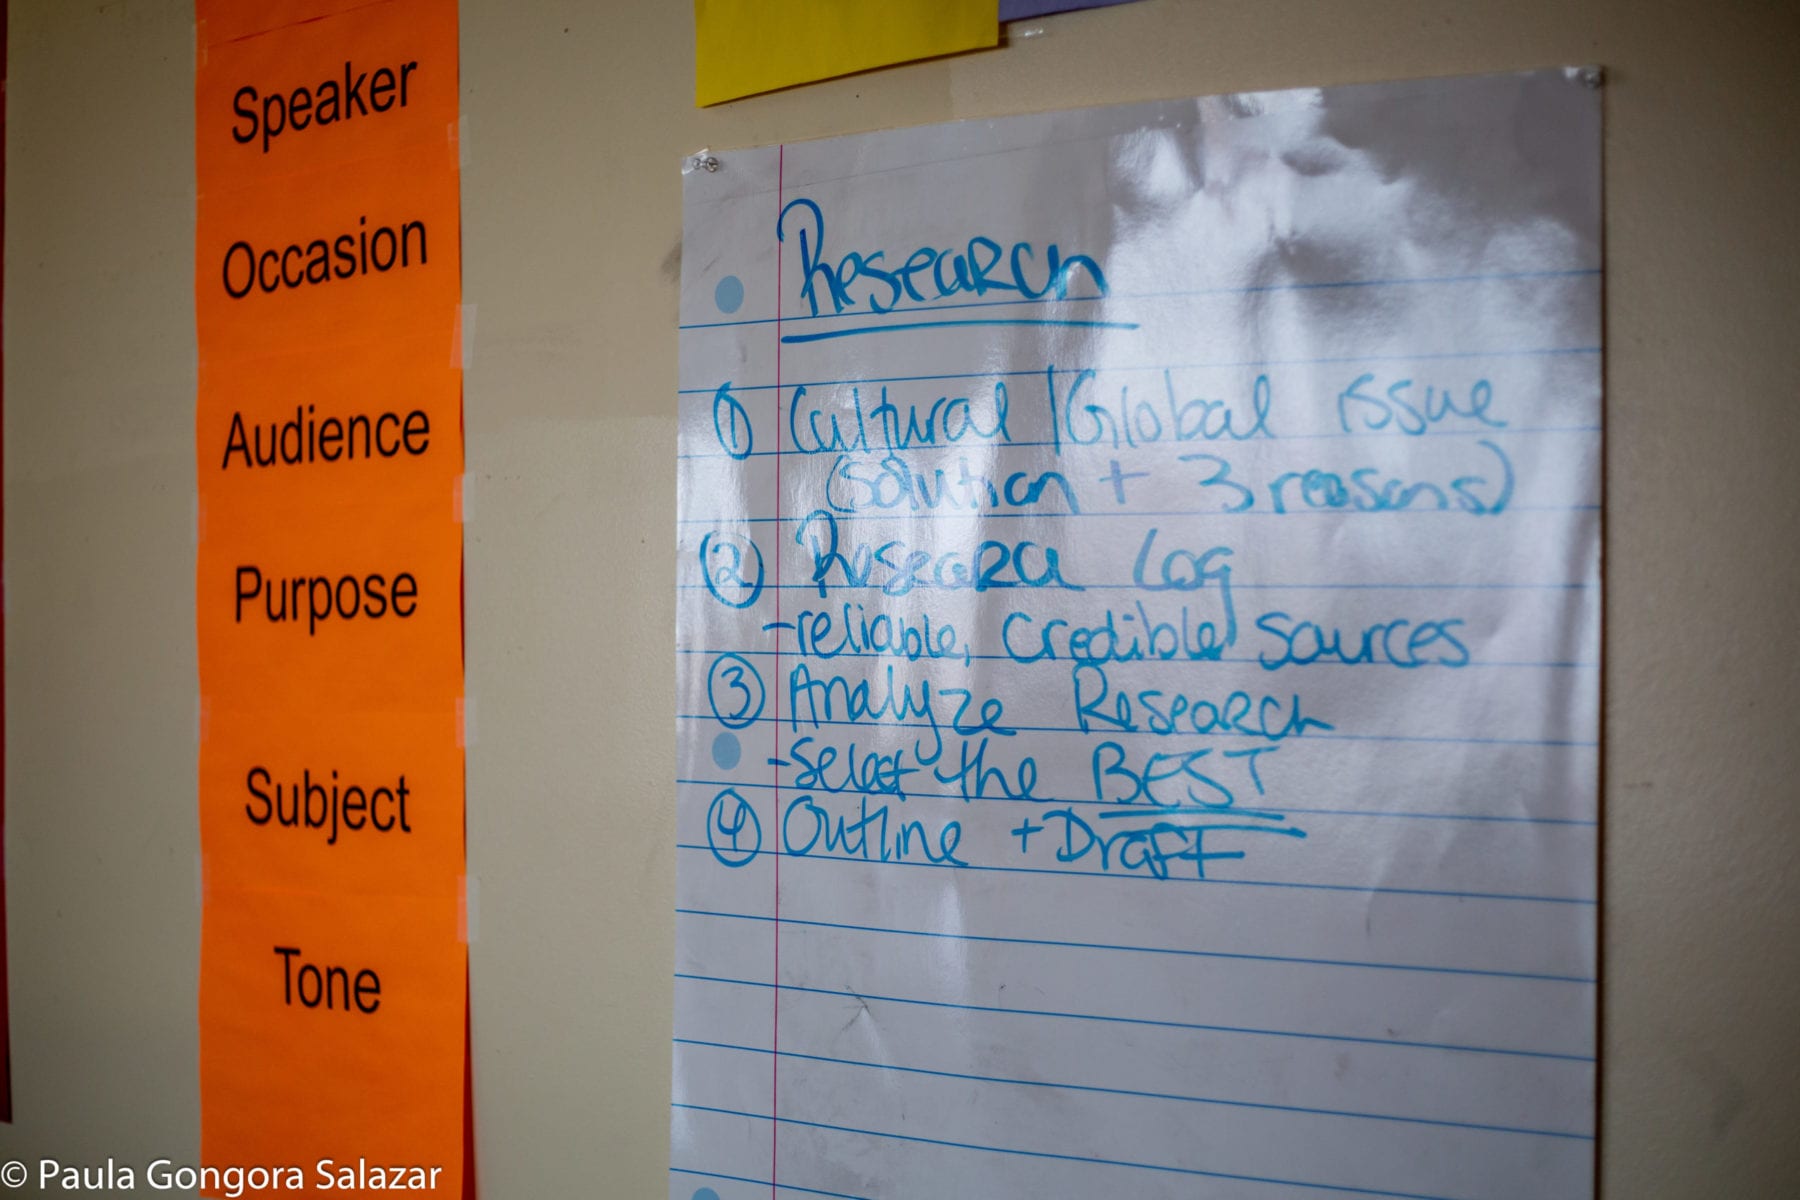 Speaker
Occasion
Audience
Purpose
Subject
Tone
Research
① Cultural/Global issue
(solution + 3 reasons)
② Research Log
-reliable, credible sources
③ Analyze Research
-select the BEST
④ Outline + Draft
© Paula Gongora Salazar